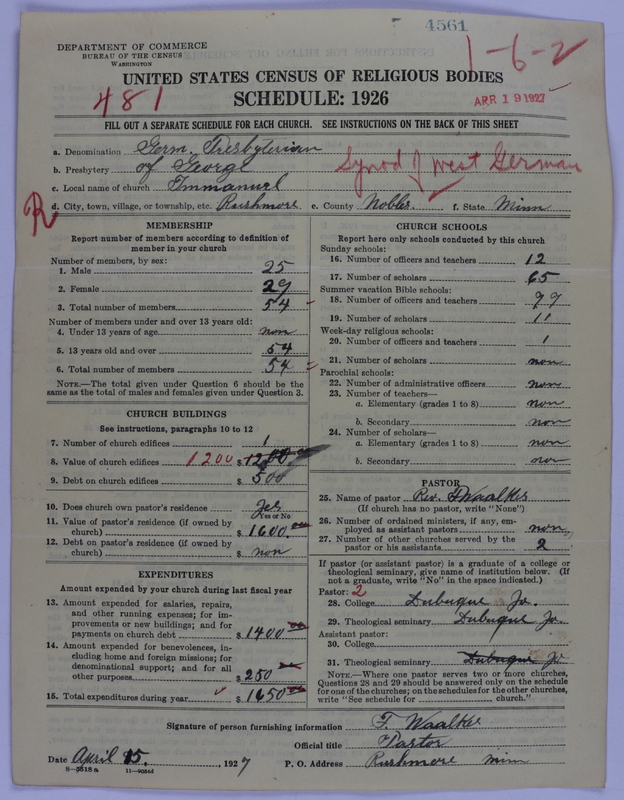 4561
DEPARTMENT OF COMMERCE
BUREAU OF THE CENSUS
WASHINGTON
1-6-2
UNITED STATES CENSUS OF RELIGIOUS BODIES
481
SCHEDULE: 1926
APR 19 1927
FILL OUT A SEPARATE SCHEDULE FOR EACH CHURCH. SEE INSTRUCTIONS ON THE BACK OF THIS SHEET
a. Denomination Germ. Presbyterian
b. Presbytery of George
Synod of West German
c. Local name of church Immanuel
R
d. City, town, village, or township, etc. Rushmore e. County Nobles. f. State Minn
MEMBERSHIP
Report number of members according to definition of
member in your church
Number of members, by sex:
1. Male 25
2. Female 29
3. Total number of members 54
Number of members under and over 13 years old:
4. Under 13 years of age non
5. 13 years old and over 54
6. Total number of members 54
NOTE.—The total given under Question 6 should be the
same as the total of males and females given under Question 3.
CHURCH BUILDINGS
See instructions, paragraphs 10 to 12
7. Number of church edifices 1
8. Value of church edifices 1200 $ 1200
9. Debt on church edifices $ 500
10. Does church own pastor's residence Yes
Yes or No
11. Value of pastor's residence (if owned by
church) $ 1600.00
12. Debt on pastor's residence (if owned by
church) $ non
EXPENDITURES
Amount expended by your church during last fiscal year
13. Amount expended for salaries, repairs,
and other running expenses; for im-
provements or new buildings; and for
payments on church debt $ 1400 00
14. Amount expended for benevolences, in-
cluding home and foreign missions; for
denominational support; and for all
other purposes $ 250
15. Total expenditures during year $ 1650 00
CHURCH SCHOOLS
Report here only schools conducted by this church
Sunday schools:
16. Number of officers and teachers 12
17. Number of scholars 65
Summer vacation Bible schools:
18. Number of officers and teachers
19. Number of scholars 11
Week-day religious schools:
20. Number of officers and teachers 1
21. Number of scholars non
Parochial schools:
22. Number of administrative officers non
23. Number of teachers—
a. Elementary (grades 1 to 8) non
b. Secondary non
24. Number of scholars—
a. Elementary (grades 1 to 8) non
b. Secondary non
PASTOR
25. Name of pastor Rev. F Waalkes
(If church has no pastor, write "None")
26. Number of ordained ministers, if any, em-
ployed as assistant pastors non
27. Number of other churches served by the
pastor or his assistants 2
If pastor (or assistant pastor) is a graduate of a college or
theological seminary, give name of institution below. (If
not a graduate, write "No" in the space indicated.)
Pastor: 2
28. College Dubuque Jo.
29. Theological seminary Dubuque Jo.
Assistant pastor:
30. College
31. Theological seminary Dubuque Jo.
NOTE.—Where one pastor serves two or more churches,
Questions 28 and 29 should be answered only on the schedule
for one of the churches; on the schedules for the other churches,
write "See schedule for church."
Signature of person furnishing information F. Waalkes
Official title Pastor
Date April 15, 1927 P. O. Address Rushmore Minn
8-5518a 11-9056d